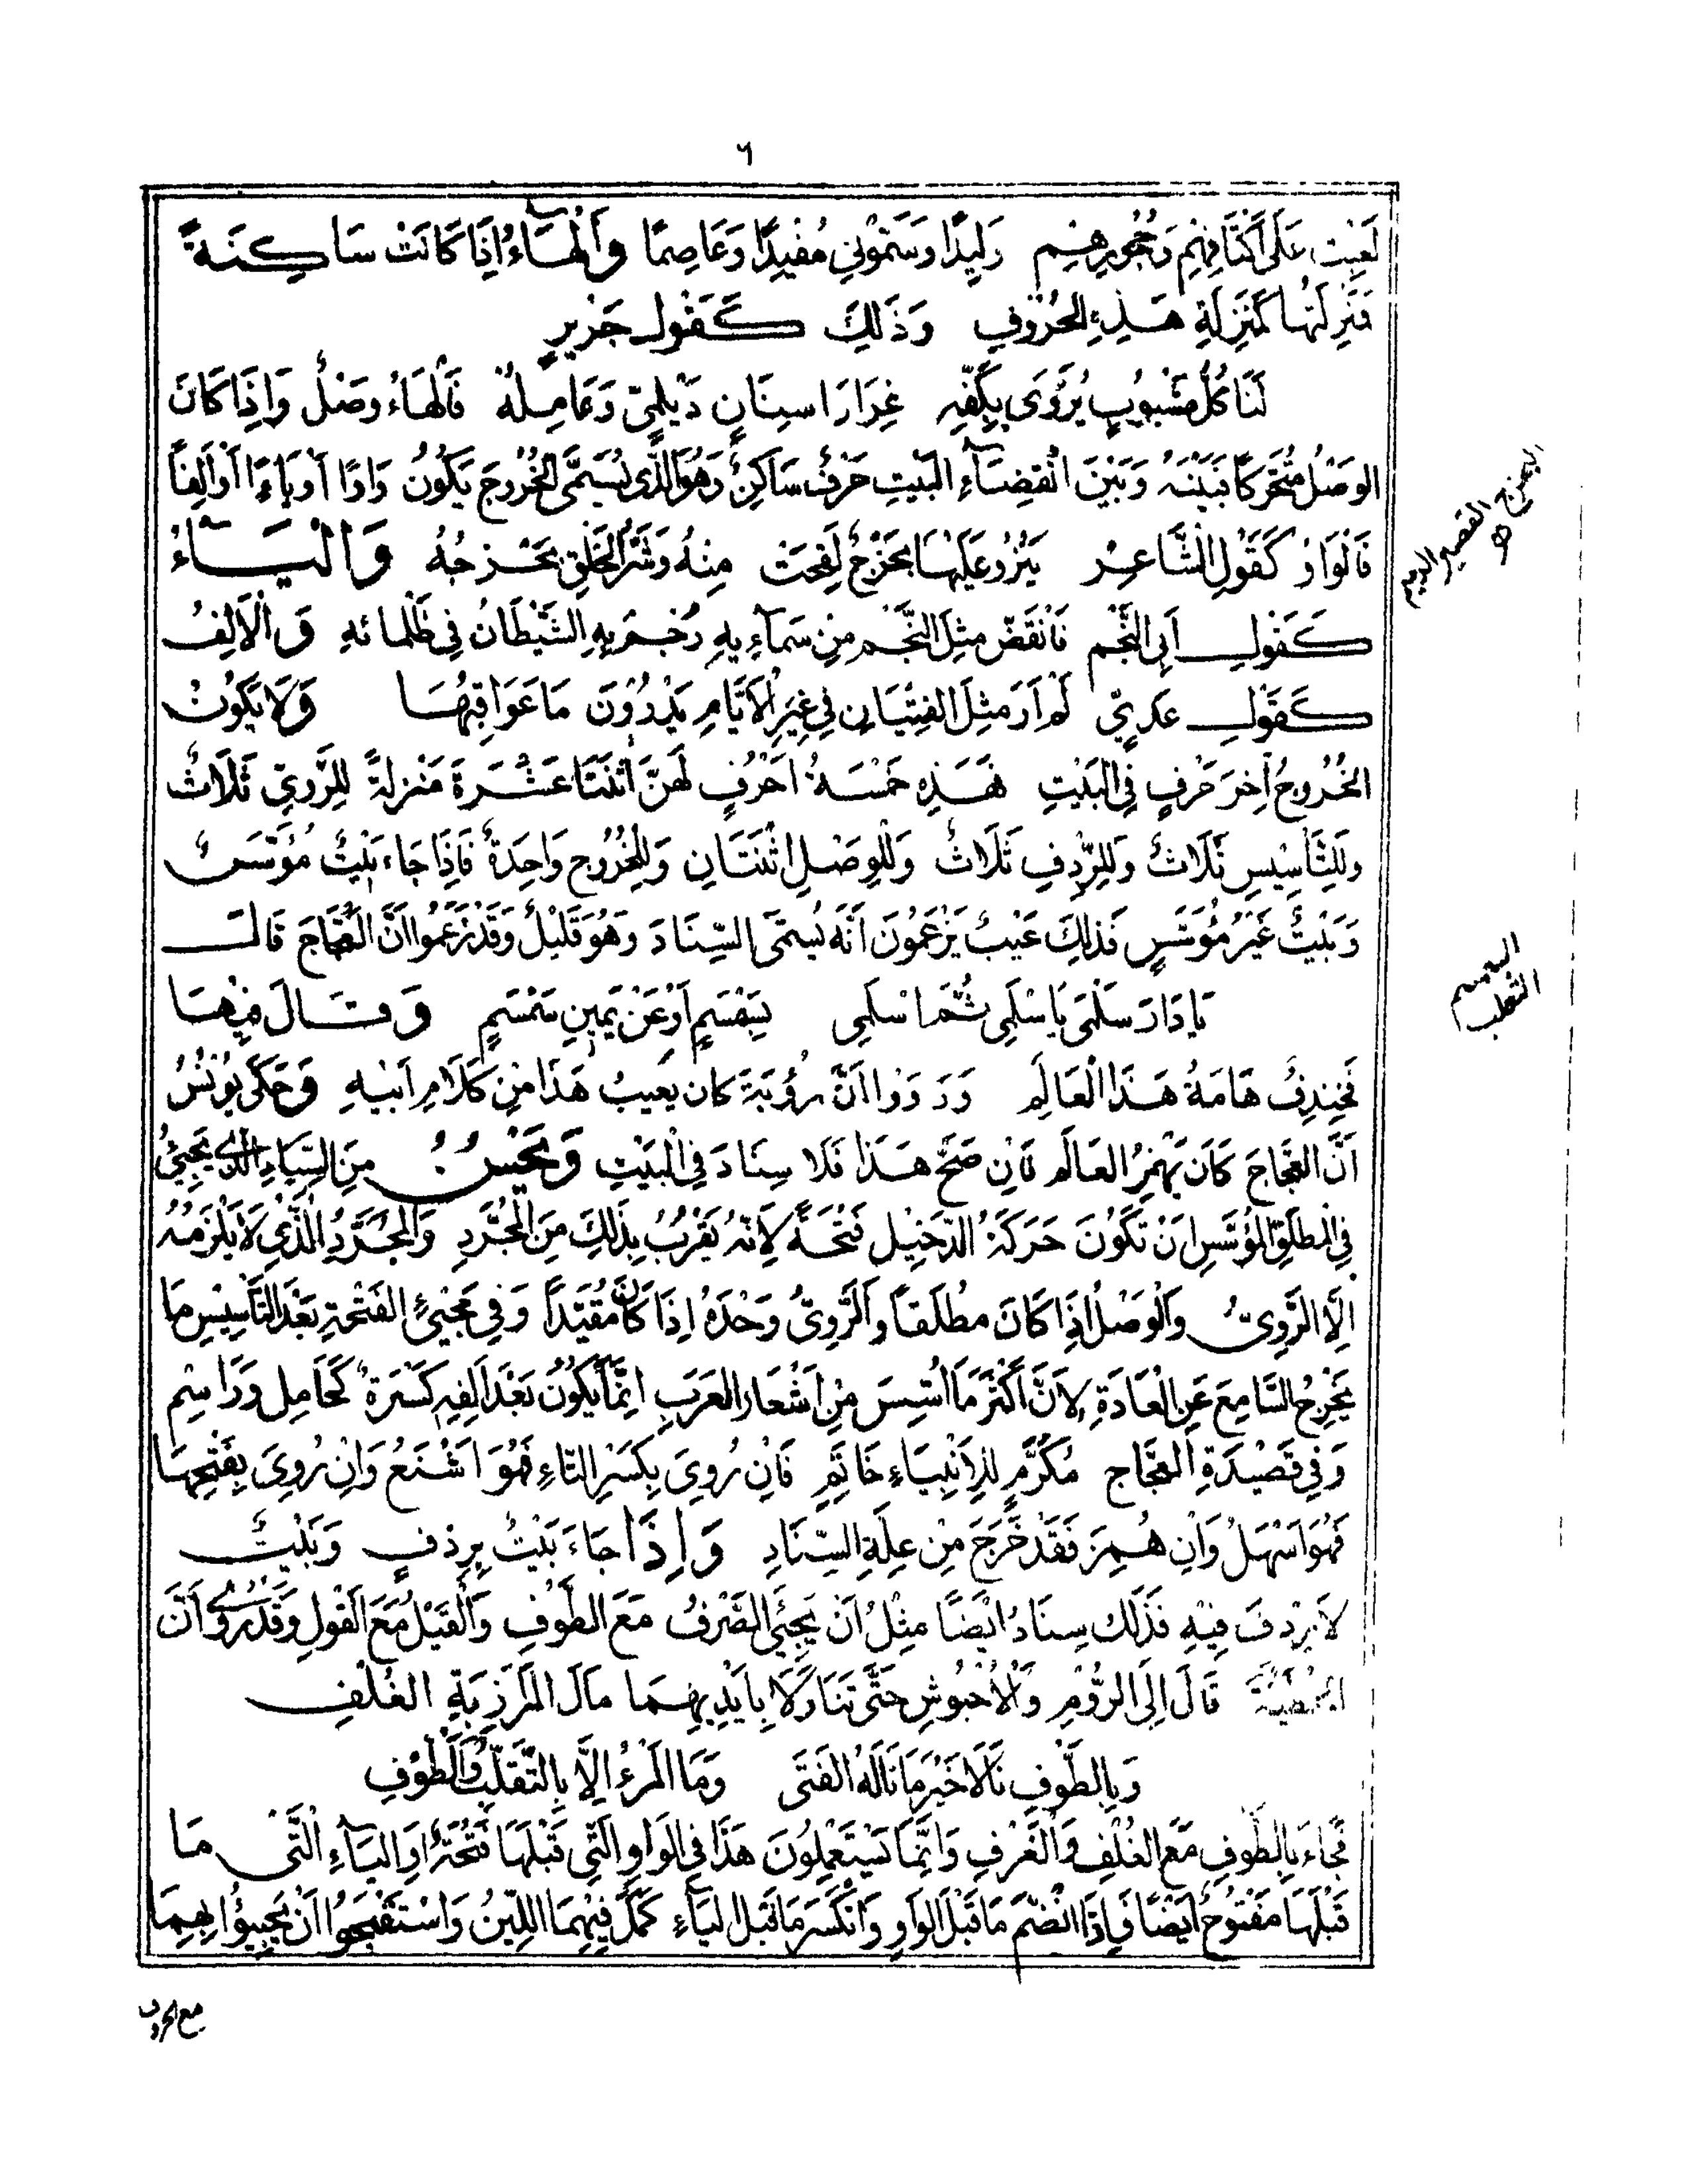 ٦
لَعِبْتُ عَلَى أَكْتَافِهِمْ وَحُجُورِهِمْ وَلِيدًا وَسَمَّوْنِي مُفِيدًا وَعَاصِمًا وَالْهَاءُ إِذَا كَانَتْ سَاكِنَةً
فَمَنْزِلَتُهَا كَمَنْزِلَةِ هَذِهِ الْحُرُوفِ وَذَلِكَ كَقَوْلِ جَرِيرٍ
لَنَا كُلُّ مَشْبُوبٍ يُرَوَّى بِكَفِّهِ غِرَارَا سِنَانٍ دَيْلَمِيٍّ وَعَامِلُهْ فَالْهَاءُ وَصْلٌ وَإِذَا كَانَ
الوَصْلُ مُتَحَرِّكًا فَبَيْنَهُ وَبَيْنَ انْقِضَاءِ الْبَيْتِ حَرْفٌ سَاكِنٌ وَهُوَ الَّذِي يُسَمَّى الْخُرُوجَ يَكُونُ وَاوًا أَوْ يَاءً أَوْ أَلِفًا
فَالْوَاوُ كَقَوْلِ الشَّاعِرِ يَنْزُو عَلَيْهَا بَحْزَجٌ لَقِحَتْ مِنْهُ وَشَرُّ الْخَلْقِ بَحْزَجُهُ وَالْيَاءُ
كَقَوْلِ أَبِي النَّجْمِ فَانْقَضَّ مِثْلَ النَّجْمِ مِنْ سَمَائِهِ رُجِمَ بِهِ الشَّيْطَانُ فِي ظَلْمَائِهِ وَالْأَلِفُ
كَقَوْلِ عَدِيٍّ لَمْ أَرَ مِثْلَ الْفِتْيَانِ فِي غِيَرِ الْأَيَّامِ يَدْرُونَ مَا عَوَاقِبُهَا وَلَا يَكُونُ
الْخُرُوجُ آخِرَ حَرْفٍ فِي الْبَيْتِ فَهَذِهِ خَمْسَةُ أَحْرُفٍ لَهُنَّ اثْنَتَا عَشْرَةَ مَنْزِلَةً لِلرَّوِيِّ ثَلَاثٌ
وَلِلتَّأْسِيسِ ثَلَاثٌ وَلِلرِّدْفِ ثَلَاثٌ وَلِلْوَصْلِ اثْنَتَانِ وَلِلْخُرُوجِ وَاحِدَةٌ فَإِذَا جَاءَ بَيْتٌ مُؤَسَّسٌ
وَبَيْتٌ غَيْرُ مُؤَسَّسٍ فَذَلِكَ عَيْبٌ يَزْعَمُونَ أَنَّهُ يُسَمَّى السِّنَادَ وَهُوَ قَلِيلٌ وَقَدْ زَعَمُوا أَنَّ الْعَجَّاجَ قَالَ
يَا دَارَ سَلْمَى يَا سْلَمِي ثُمَّ اسْلَمِي بِسَمْسَمٍ أَوْ عَنْ يَمِينِ سَمْسَمٍ وَقَالَ فِيهَا
فَخِنْدِفٌ هَامَةُ هَذَا الْعَالَمِ وَرَوَوْا أَنَّ رُؤْبَةَ كَانَ يَعِيبُ هَذَا مِنْ كَلَامِ أَبِيهِ وَحَكَى يُونُسُ
أَنَّ الْعَجَّاجَ كَانَ يَهْمِزُ الْعَالَمَ فَإِنْ صَحَّ هَذَا فَلَا سِنَادَ فِي الْبَيْتِ وَيَحْسُنُ مِنَ السِّنَادِ الَّذِي يَجِيْءُ
فِي الْمُطْلَقِ الْمُؤَسَّسِ أَنْ تَكُونَ حَرَكَةُ الدَّخِيلِ فَتْحَةً لِأَنَّهُ يَقْرُبُ بِذَلِكَ مِنَ الْمُجَرَّدِ وَالْمُجَرَّدُ الَّذِي لَا يَلْزَمُهُ
إِلَّا الرَّوِيُّ وَالْوَصْلُ إِذَا كَانَ مُطْلَقًا وَالرَّوِيُّ وَحْدَهُ إِذَا كَانَ مُقَيَّدًا وَفِي مَجِيْءِ الْفَتْحَةِ بَعْدَ التَّأْسِيسِ مَا
يُخْرِجُ السَّامِعَ عَنِ الْعَادَةِ لِأَنَّ أَكْثَرَ مَا أُسِّسَ مِنْ أَشْعَارِ الْعَرَبِ إِنَّمَا يَكُونُ بَعْدَ أَلِفِهِ كَسْرَةٌ كَحَامِلٍ وَرَاسِمٍ
وَفِي قَصِيدَةِ الْعَجَّاجِ مُكَرَّمٍ لِلْأَنْبِيَاءِ خَاتَمِ فَإِنْ رُوِيَ بِكَسْرِ التَّاءِ فَهُوَ أَشْنَعُ وَإِنْ رُوِيَ بِفَتْحِهَا
فَهُوَ أَسْهَلُ وَإِنْ هُمِزَ فَقَدْ خَرَجَ مِنْ عِلَّةِ السِّنَادِ وَإِذَا جَاءَ بَيْتٌ بِرِدْفٍ وَبَيْتٌ
لَا رِدْفَ فِيهِ فَذَلِكَ سِنَادٌ أَيْضًا مِثْلُ أَنْ يَجِيْءَ الصَّرْفُ مَعَ الطَّوْفِ وَالْقَيْلُ مَعَ الْقَوْلِ وَقَدْ رُوِيَ أَنَّ
الحُطَيْئَةَ قَالَ إِلَى الرُّومِ وَالْأُحْبُوشِ حَتَّى تَنَاوَلَا بِأَيْدِيهِمَا مَالَ الْمَرَازِبَةِ الْغُلْفِ
وَبِالطَّوْفِ نَالَا خَيْرَ مَا نَالَهُ الْفَتَى وَمَا الْمَرْءُ إِلَّا بِالتَّقَلُّبِ وَالطَّوْفِ
فَجَاءَ بِالطَّوْفِ مَعَ الْغُلْفِ وَالْغَرْفِ وَإِنَّمَا يَسْتَعْمِلُونَ هَذَا فِي الْوَاوِ الَّتِي قَبْلَهَا فَتْحَةٌ أَوِ الْيَاءِ الَّتِي مَا
قَبْلَهَا مَفْتُوحٌ أَيْضًا فَإِذَا انْضَمَّ مَا قَبْلَ الْوَاوِ وَانْكَسَرَ مَا قَبْلَ الْيَاءِ كَمُلَ فِيهِمَا اللِّينُ وَاسْتَقْبَحُوا أَنْ يَجِيئُوا بِهِمَا
البحزج القصير
السمسم
الثعلب
مع الحروف